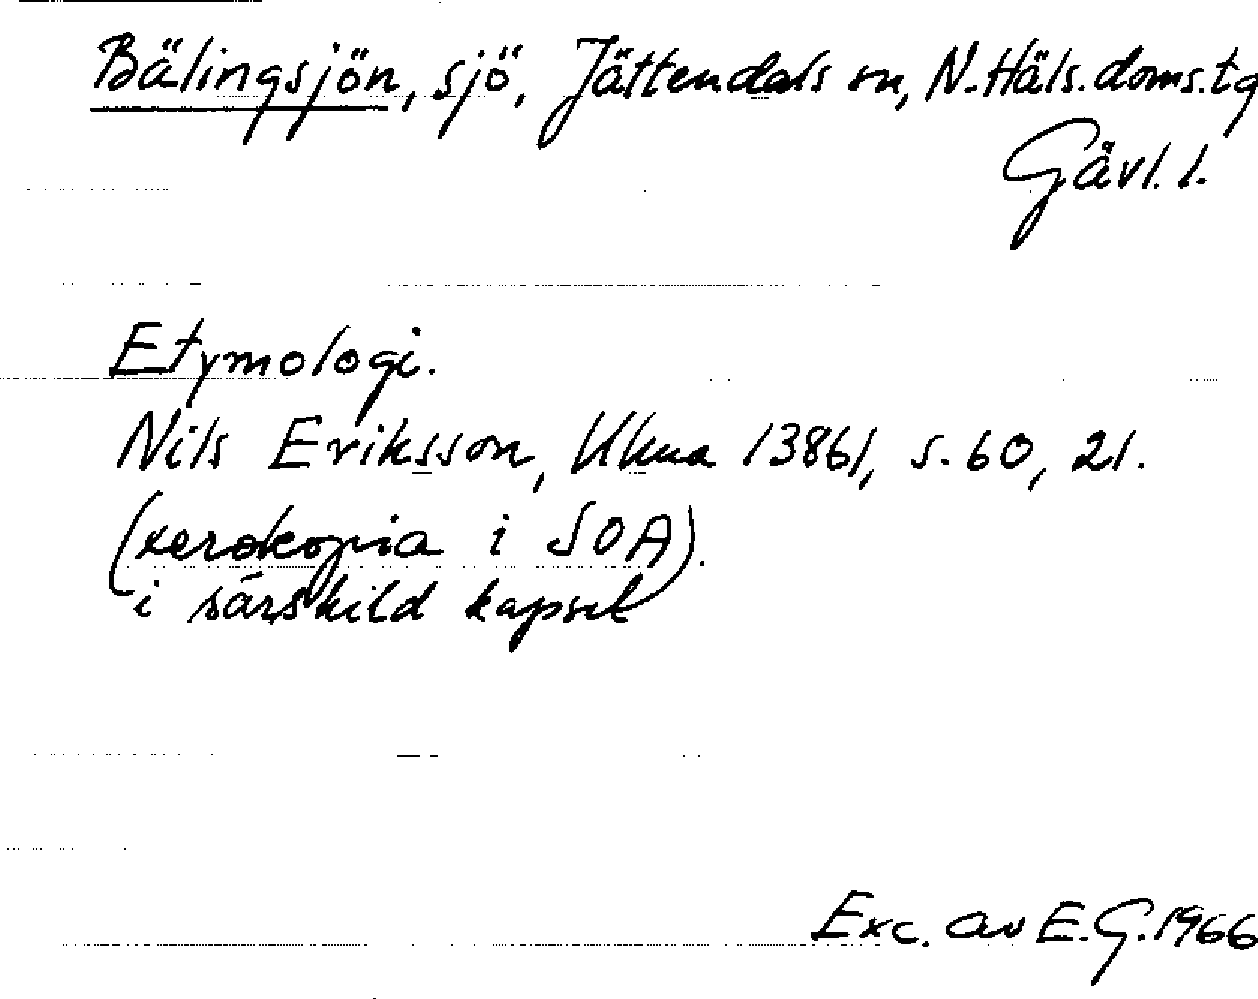 Bälingsjön, sjö, Jättendals sn, N. Häls. doms.tg
Gävl. l.
Etymologi.
Nils Eriksson, Ukua 13861, s. 60, 21.
(xerokopia i SOA).
i särskild kapsel
Exc. av E.G. 1966